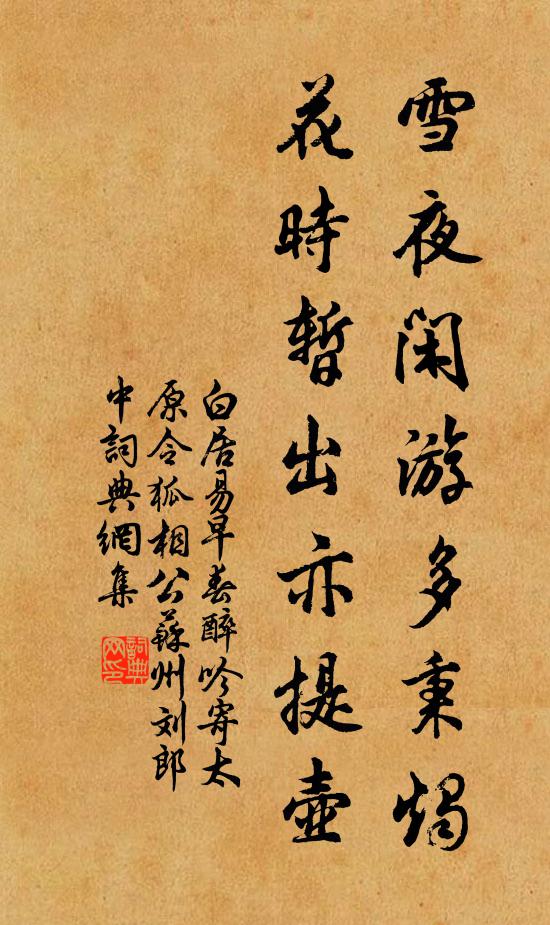 雪夜閑游多秉燭
花時暫出亦提壺
白居易早春醉吟寄太
原令狐相公蘇州刘郎
中詞典網集
詞典
网印